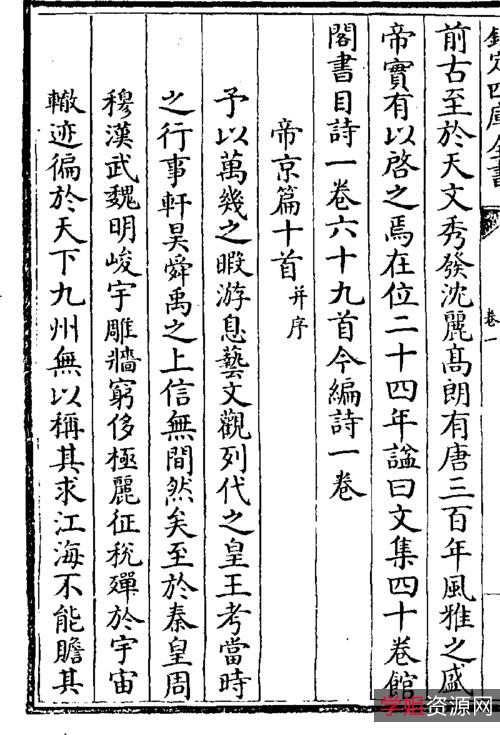 欽定四庫全書
卷一
前古至於天文秀發沈麗髙朗有唐三百年風雅之盛
帝實有以啓之焉在位二十四年諡曰文集四十卷館
閣書目詩一卷六十九首今編詩一卷
帝京篇十首并序
予以萬幾之暇游息藝文觀列代之皇王考當時
之行事軒昊舜禹之上信無間然矣至於秦皇周
穆漢武魏明峻宇雕牆窮侈極麗征稅殫於宇宙
轍迹徧於天下九州無以稱其求江海不能贍其
学姐资源网